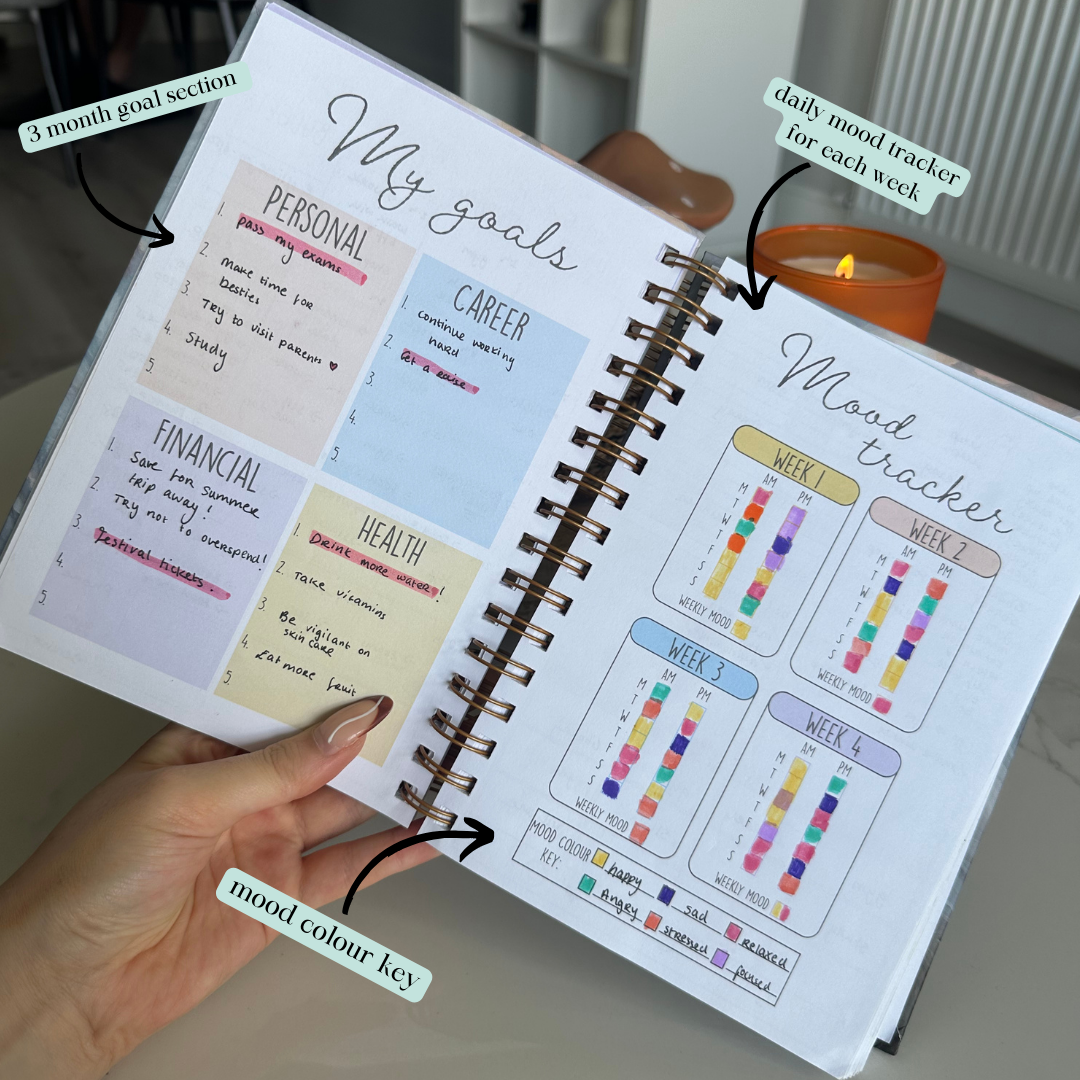 3 month goal section
daily mood tracker
for each week
mood colour key
My goals
PERSONAL
1. pass my exams
2. Make time for
besties
3. Try to visit parents ♥
4. Study
5.
CAREER
1. continue working
hard
2. Get a raise
3.
4.
5.
FINANCIAL
1. Save for summer
trip away!
2. Try not to overspend!
3. festival tickets.
4.
5.
HEALTH
1. Drink more water!
2. Take vitamins
3. Be vigilant on
skin care
4. Eat more fruit
5.
Mood
tracker
WEEK 1
AM PM
M
T
W
T
F
S
S
WEEKLY MOOD
WEEK 2
AM PM
M
T
W
T
F
S
S
WEEKLY MOOD
WEEK 3
AM PM
M
T
W
T
F
S
S
WEEKLY MOOD
WEEK 4
AM PM
M
T
W
T
F
S
S
WEEKLY MOOD
MOOD COLOUR
KEY:
happy sad relaxed
Angry stressed focused